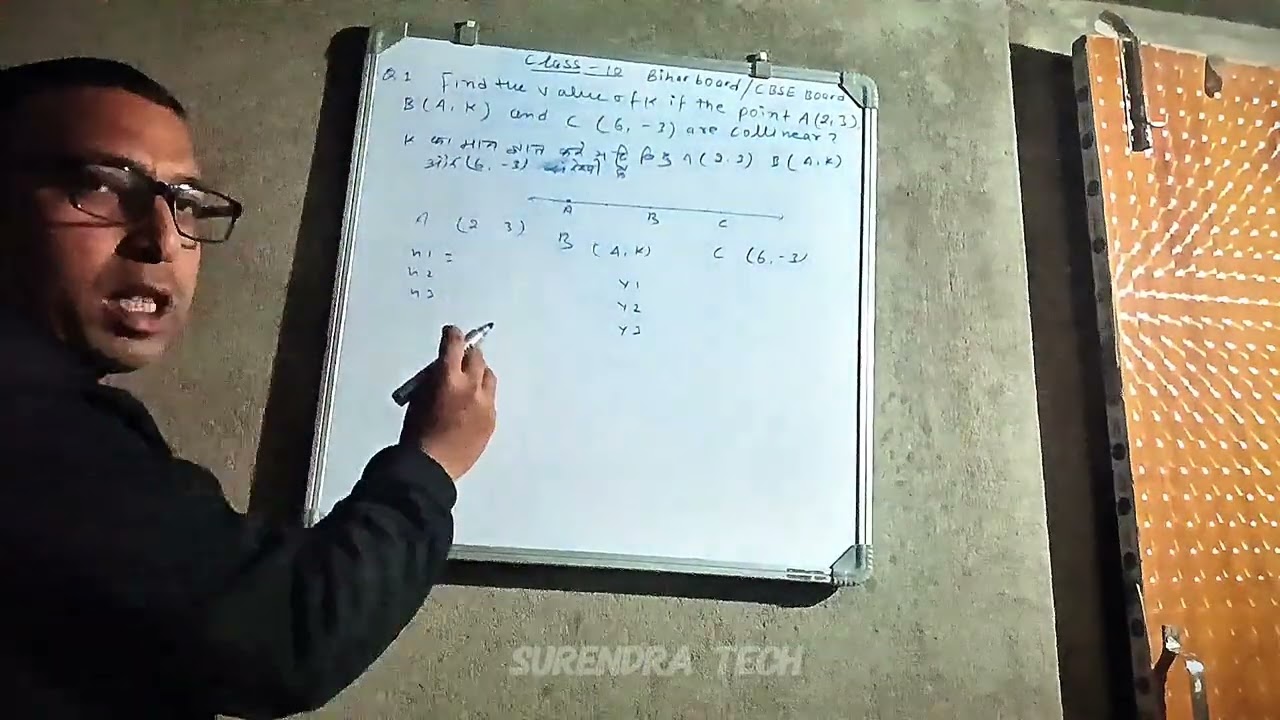 Class-10 Bihar board/CBSE Board
Q.1 Find the value of K if the point A(2,3)
B(4,K) and C (6,-3) are collinear?
K का मान ज्ञात करें यदि बिन्दु A(2,3) B(4,K)
और (6,-3)
A B C
A (2 3) B (4,K) C (6,-3)
x1 =
x2
x3
y1
y2
y3
SURENDRA TECH